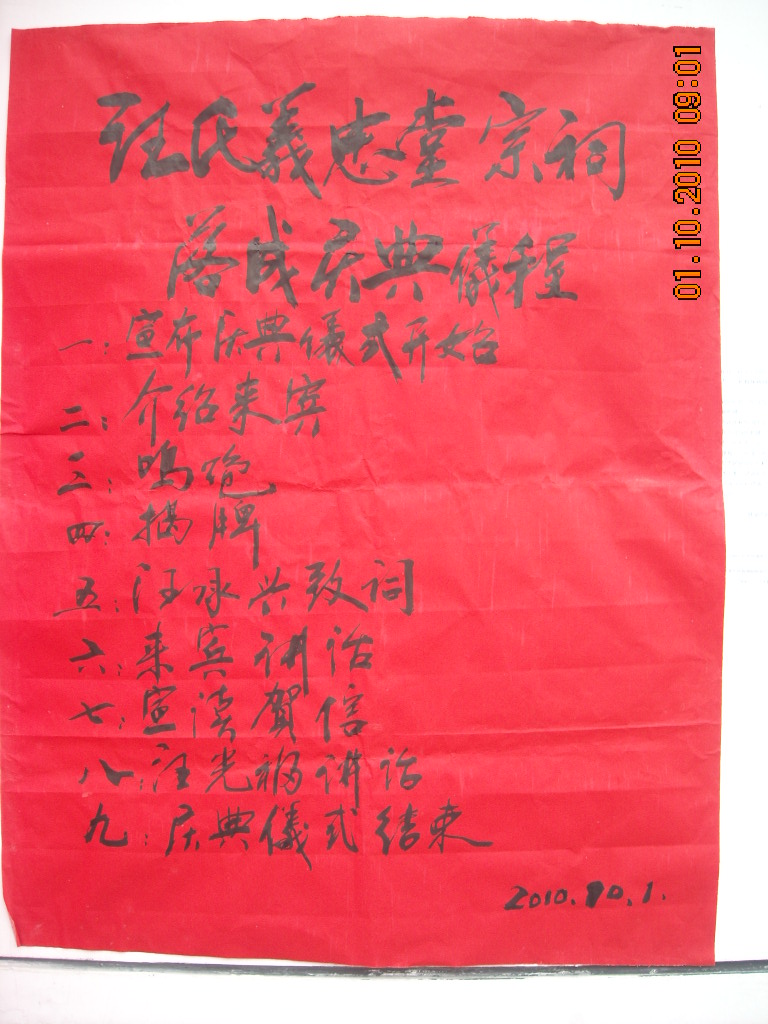 汪氏義忠堂宗祠
落成庆典儀程
一：宣布庆典儀式开始
二：介绍来宾
三：鸣炮
四：揭牌
五：汪承兴致词
六：来宾讲话
七：宣读賀信
八：汪光福讲话
九：庆典儀式结束
2010.10.1.
01.10.2010 09:01